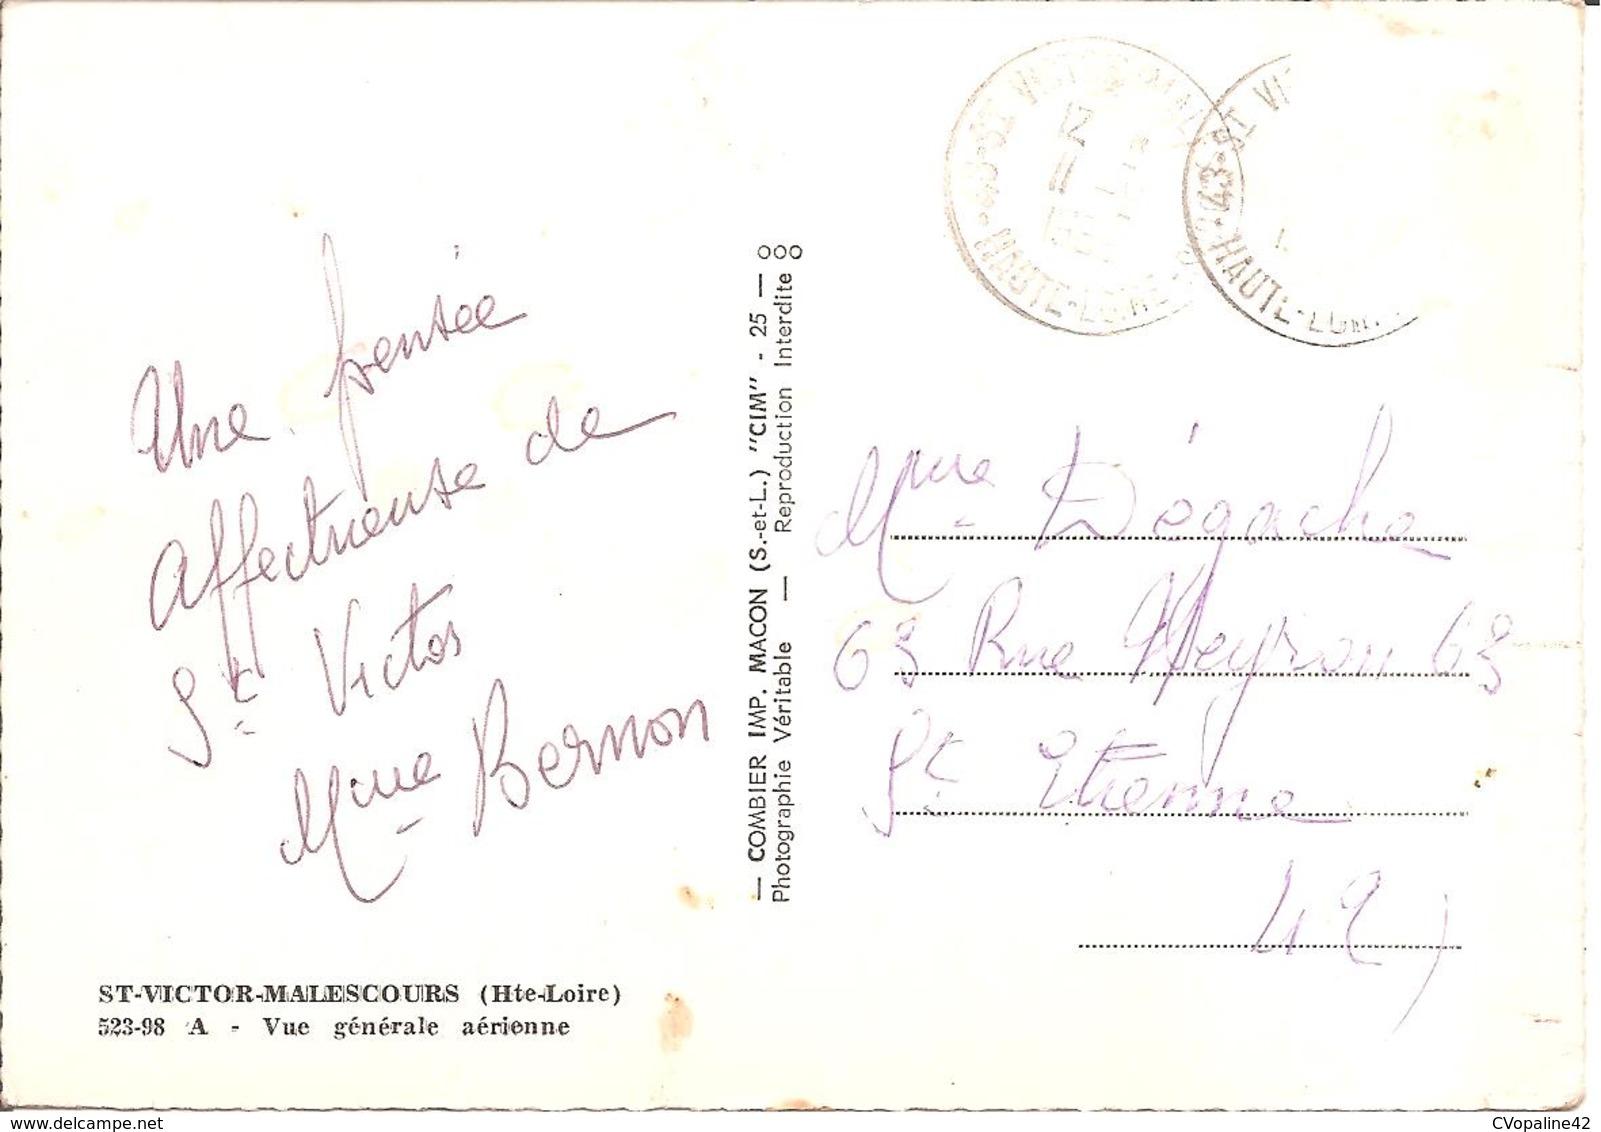 Une pensée
affectueuse de
St Victor
Mme Bernon
ST-VICTOR-MALESCOURS (Hte-Loire)
523-98 A - Vue générale aérienne
— COMBIER IMP. MACON (S.-et-L.) "CIM" - 25 —
Photographie Véritable — Reproduction Interdite
43-ST VICTOR MAL
HAUTE-LOIRE
12
11
43-ST VI
HAUTE-LOIR
Mme Dégache
63 Rue Neyron 63
St Etienne
42)
delcampe.net
CVopaline42